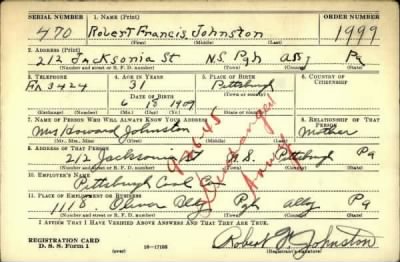 SERIAL NUMBER 1. NAME (Print) ORDER NUMBER
470 Robert Francis Johnston 1999
(First) (Middle) (Last)
2. ADDRESS (Print)
212 Jacksonia St N.S. Pgh Ally Pa
(Number and street or R. F. D. number) (Town) (County) (State)
3. TELEPHONE 4. AGE IN YEARS 5. PLACE OF BIRTH 6. COUNTRY OF CITIZENSHIP
Fa 3424 31 Pittsburgh
DATE OF BIRTH (Town or county)
6 18 1909
(Exchange) (Number) (Mo.) (Day) (Yr.) (State or country)
7. NAME OF PERSON WHO WILL ALWAYS KNOW YOUR ADDRESS 8. RELATIONSHIP OF THAT PERSON
Mrs Howard Johnston Mother
(Mr., Mrs., Miss) (First) (Middle) (Last)
9. ADDRESS OF THAT PERSON
212 Jacksonia St N.S. Pittsburgh Pa
(Number and street or R. F. D. number) (Town) (County) (State)
10. EMPLOYER'S NAME
Pittsburgh Coal Co
11. PLACE OF EMPLOYMENT OR BUSINESS
1118 Oliver Bldg Pgh Ally Pa
(Number and street or R. F. D. number) (Town) (County) (State)
I AFFIRM THAT I HAVE VERIFIED ABOVE ANSWERS AND THAT THEY ARE TRUE.
REGISTRATION CARD
D. S. S. Form 1 (over) 16—17105 Robert F. Johnston
Discharged
Army